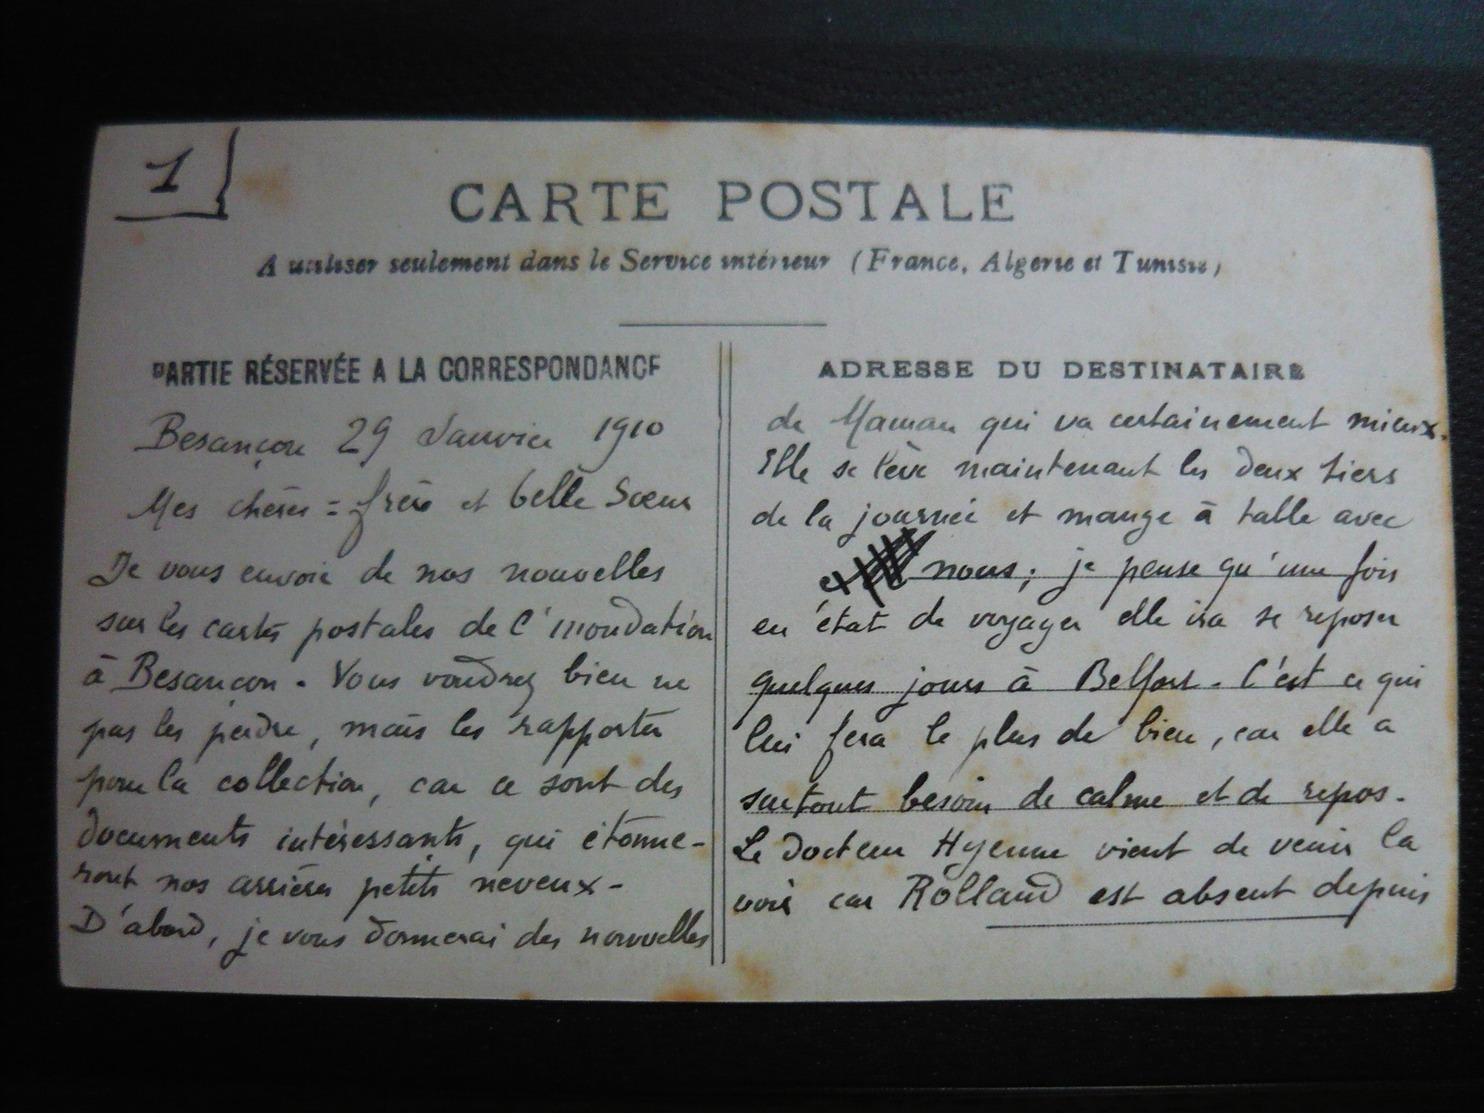 1
CARTE POSTALE
A utiliser seulement dans le Service intérieur (France, Algérie et Tunisie)
PARTIE RÉSERVÉE A LA CORRESPONDANCE
Besançon 29 Janvier 1910
Mes chers = frère et belle Sœur
Je vous envoie de nos nouvelles
sur les cartes postales de l'inondation
à Besancon. Vous voudrez bien ne
pas les perdre, mais les rapporter
pour la collection, car ce sont des
documents intéressants, qui étonne-
ront nos arrières petits neveux -
D'abord, je vous donnerai des nouvelles
ADRESSE DU DESTINATAIRE
de Maman qui va certainement mieux.
Elle se lève maintenant les deux tiers
de la journée et mange à table avec
nous ; je pense qu'une fois
en état de voyager elle ira se reposer
quelques jours à Belfort. C'est ce qui
lui fera le plus de bien, car elle a
surtout besoin de calme et de repos.
Le docteur Hyenne vient de venir la
voir car Rolland est absent depuis